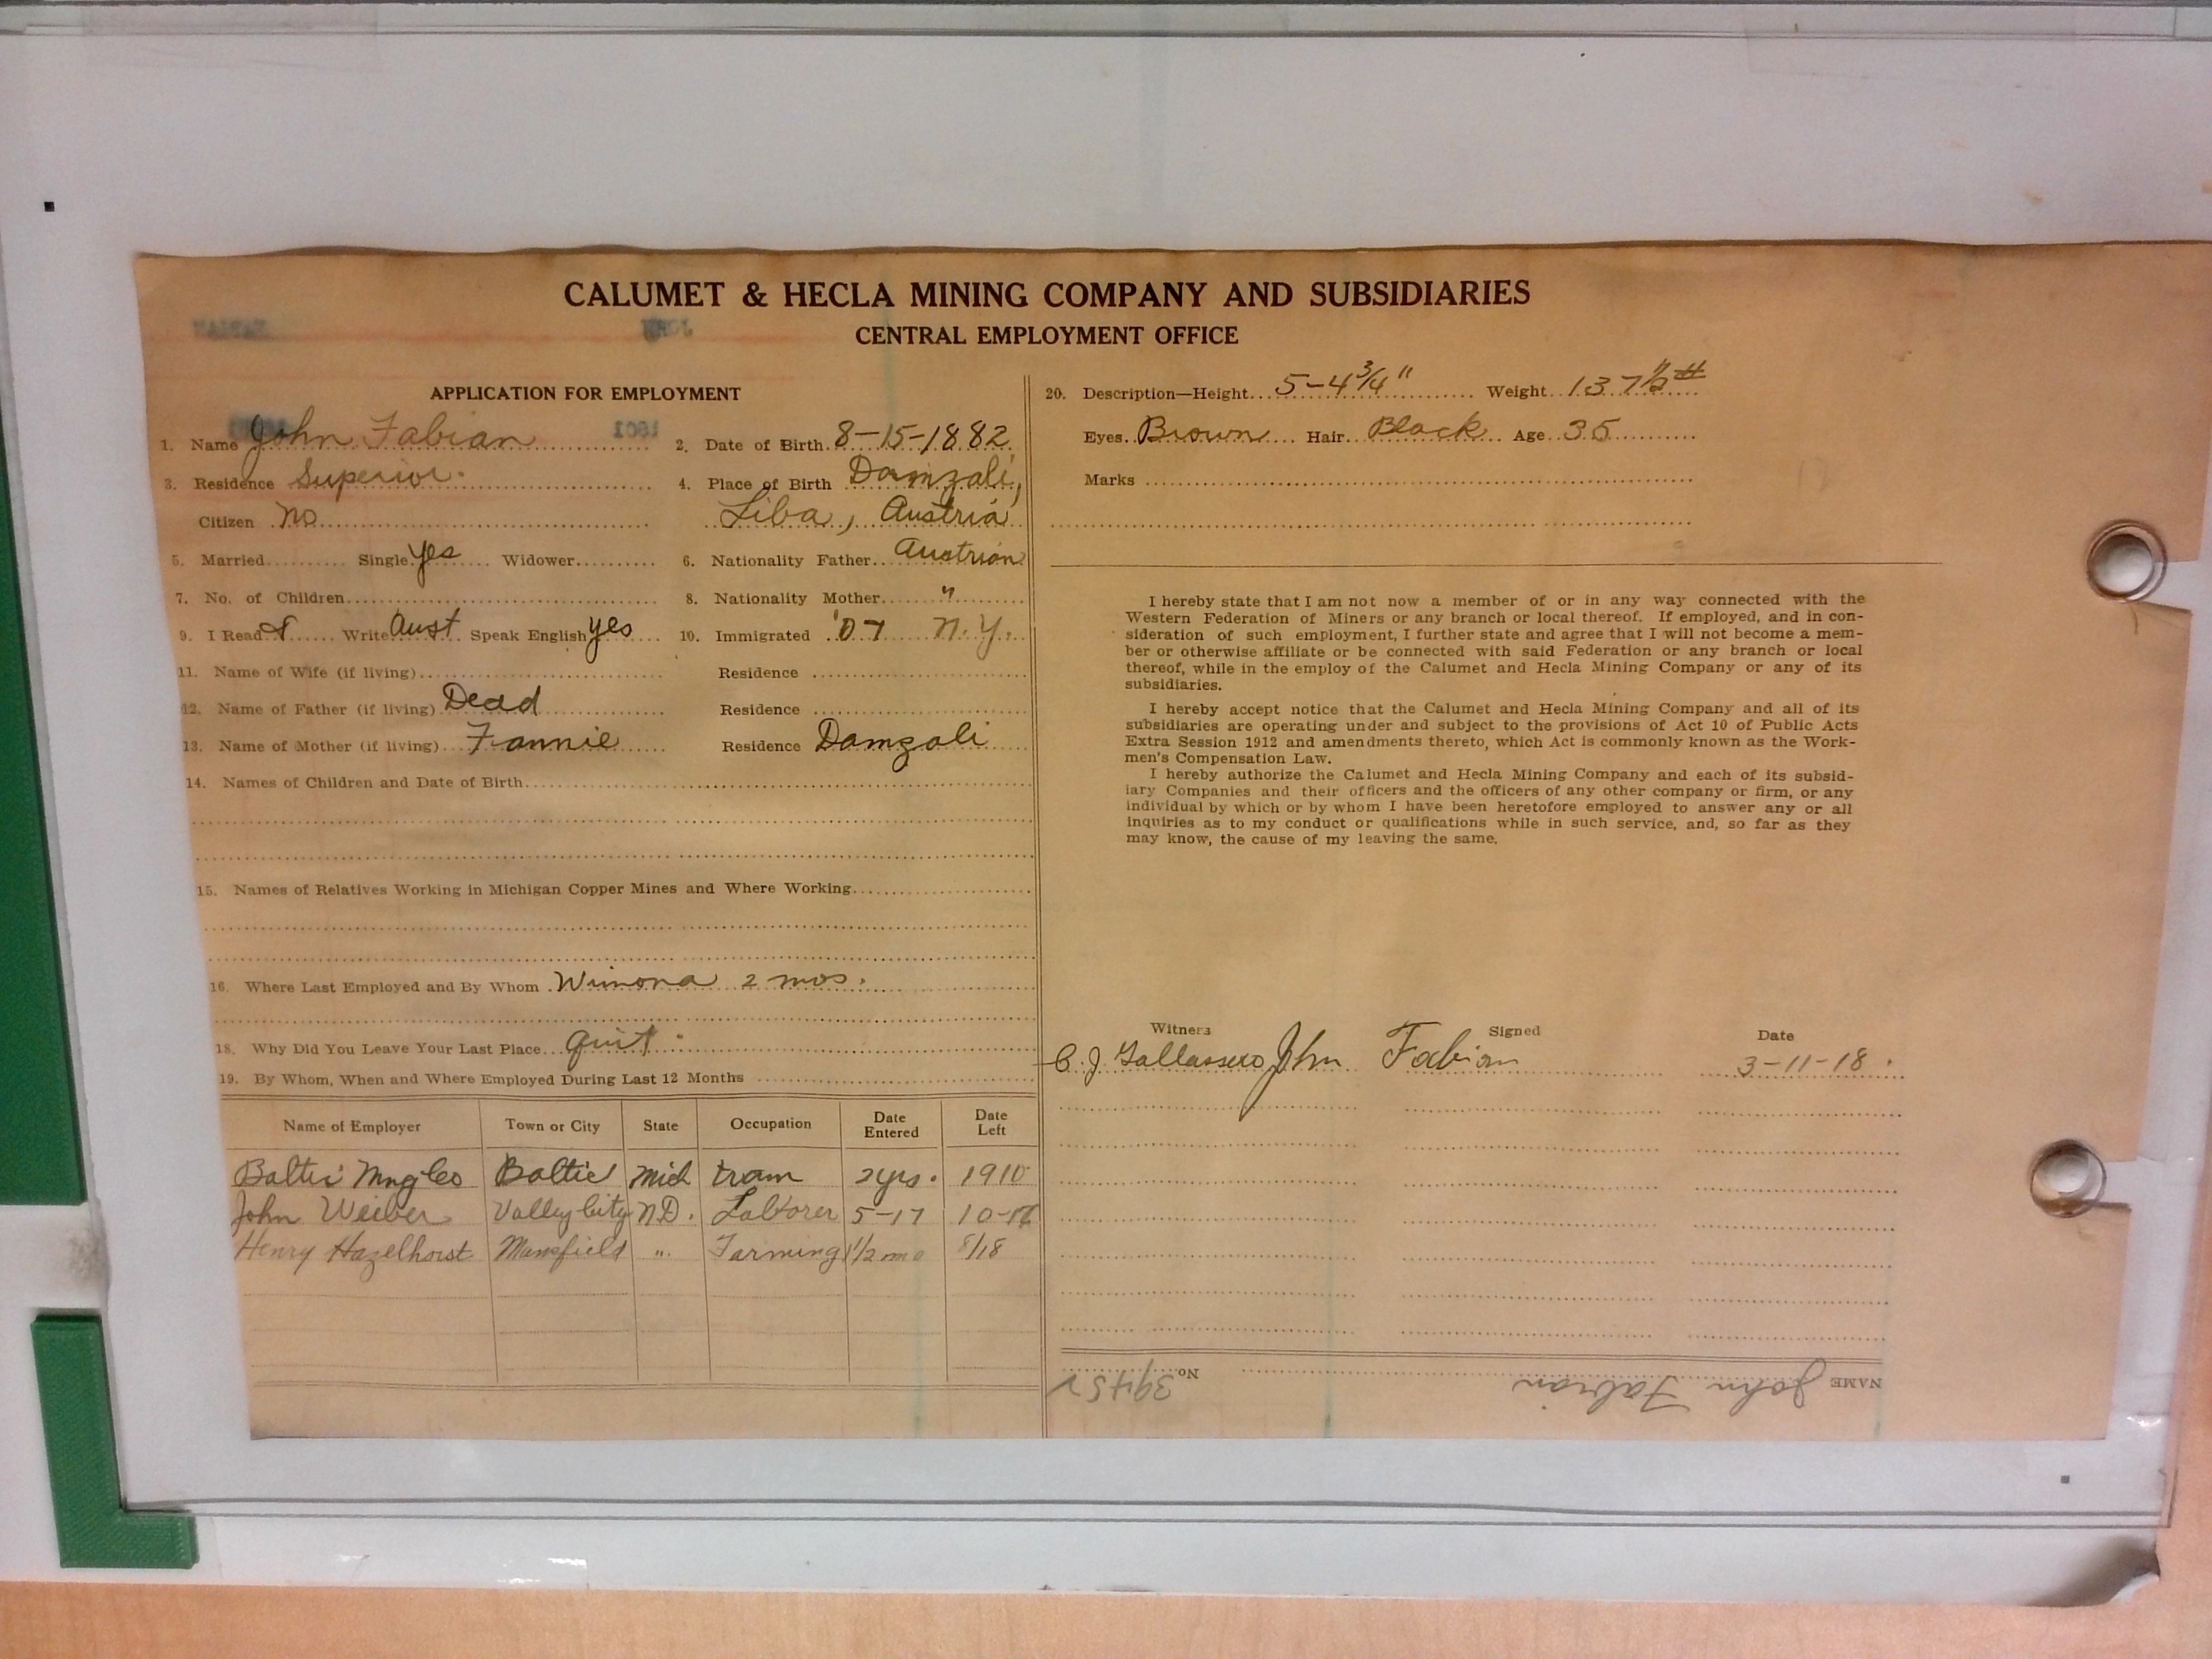 CALUMET & HECLA MINING COMPANY AND SUBSIDIARIES
CENTRAL EMPLOYMENT OFFICE
APPLICATION FOR EMPLOYMENT
1. Name John Fabian
2. Date of Birth 8-15-1882
3. Residence Superior
4. Place of Birth Damzali,
Citizen no
Liba, Austria
5. Married Single yes Widower
6. Nationality Father Austrian
7. No. of Children
8. Nationality Mother "
9. I Read & Write Aust Speak English yes
10. Immigrated '07 N.Y.
11. Name of Wife (if living) Residence
12. Name of Father (if living) Dead Residence
13. Name of Mother (if living) Fannie Residence Damzali
14. Names of Children and Date of Birth
15. Names of Relatives Working in Michigan Copper Mines and Where Working
16. Where Last Employed and By Whom Winona 2 mos.
18. Why Did You Leave Your Last Place quit
19. By Whom, When and Where Employed During Last 12 Months
Name of Employer Town or City State Occupation Date Entered Date Left
Baltic Mng Co Baltic Mich tram 2 yrs. 1910
John Weiber Valley City N.D. Laborer 5-17
Henry Hazelhorst Mansfield " Farming 1 1/2 mo
20. Description—Height 5-4 3/4" Weight 137 1/2 #
Eyes Brown Hair Black Age 35
Marks
I hereby state that I am not now a member of or in any way connected with the
Western Federation of Miners or any branch or local thereof. If employed, and in con-
sideration of such employment, I further state and agree that I will not become a mem-
ber or otherwise affiliate or be connected with said Federation or any branch or local
thereof, while in the employ of the Calumet and Hecla Mining Company or any of its
subsidiaries.
I hereby accept notice that the Calumet and Hecla Mining Company and all of its
subsidiaries are operating under and subject to the provisions of Act 10 of Public Acts
Extra Session 1912 and amendments thereto, which Act is commonly known as the Work-
men's Compensation Law.
I hereby authorize the Calumet and Hecla Mining Company and each of its subsid-
iary Companies and their officers and the officers of any other company or firm, or any
individual by which or by whom I have been heretofore employed to answer any or all
inquiries as to my conduct or qualifications while in such service, and, so far as they
may know, the cause of my leaving the same.
Witness Signed Date
C. J. John Fabian 3-11-18
NAME John Fabian No.